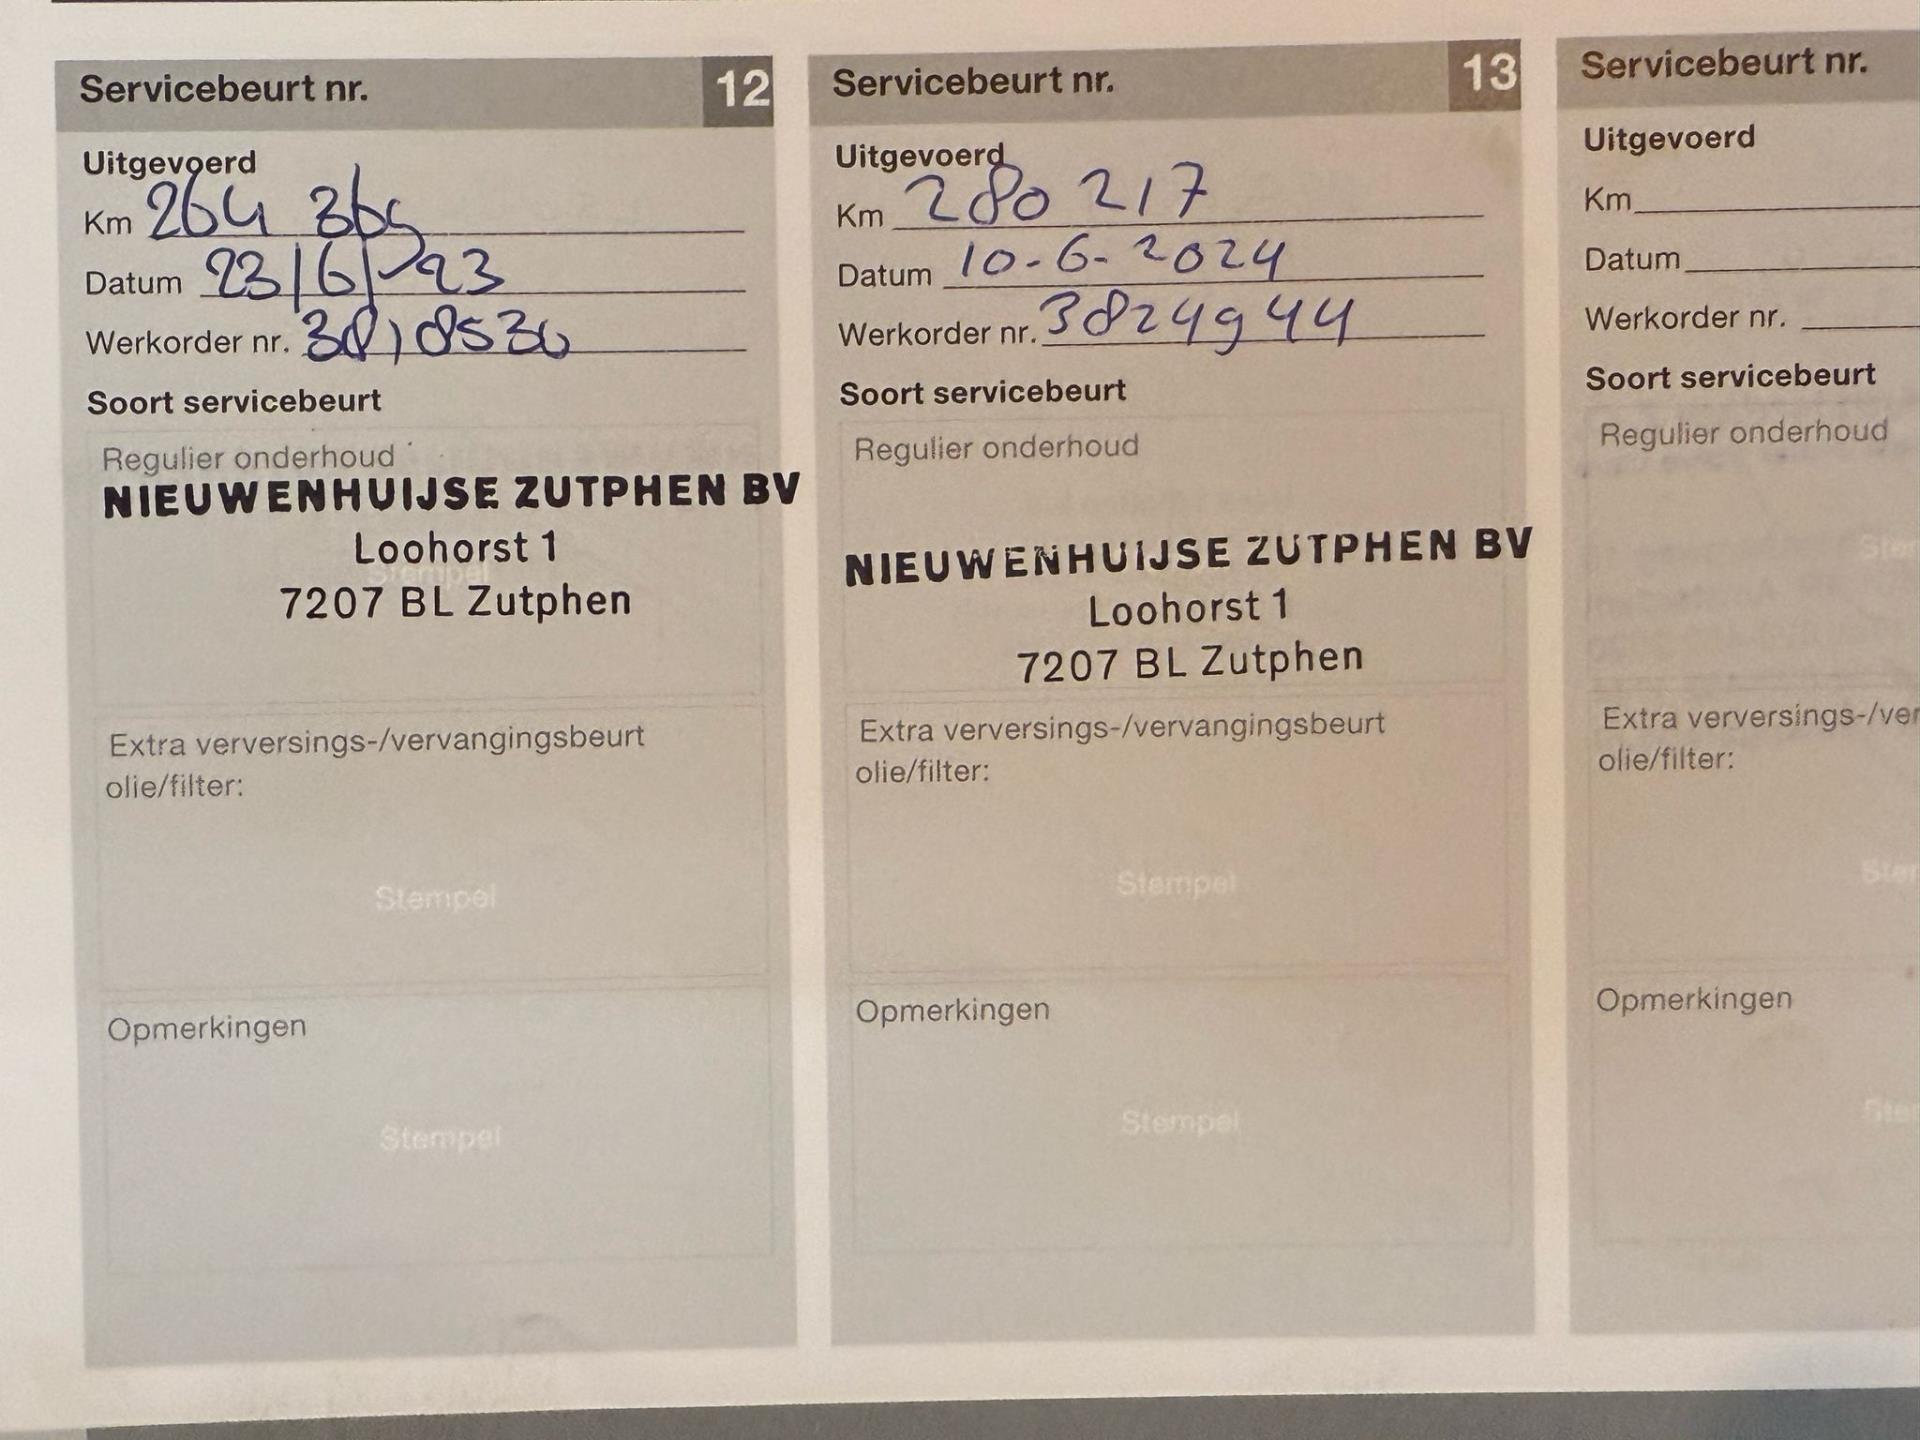 Servicebeurt nr. 12
Uitgevoerd
Km 264 369
Datum 23/6/-23
Werkorder nr. 3818530
Soort servicebeurt
Regulier onderhoud
NIEUWENHUIJSE ZUTPHEN BV
Loohorst 1
Stempel
7207 BL Zutphen
Extra verversings-/vervangingsbeurt
olie/filter:
Stempel
Opmerkingen
Stempel
Servicebeurt nr. 13
Uitgevoerd
Km 280 217
Datum 10-6-2024
Werkorder nr. 3824944
Soort servicebeurt
Regulier onderhoud
NIEUWENHUIJSE ZUTPHEN BV
Loohorst 1
7207 BL Zutphen
Extra verversings-/vervangingsbeurt
olie/filter:
Stempel
Opmerkingen
Stempel
Servicebeurt nr.
Uitgevoerd
Km
Datum
Werkorder nr.
Soort servicebeurt
Regulier onderhoud
Ste
Extra verversings-/ver
olie/filter:
Ste
Opmerkingen
Ste